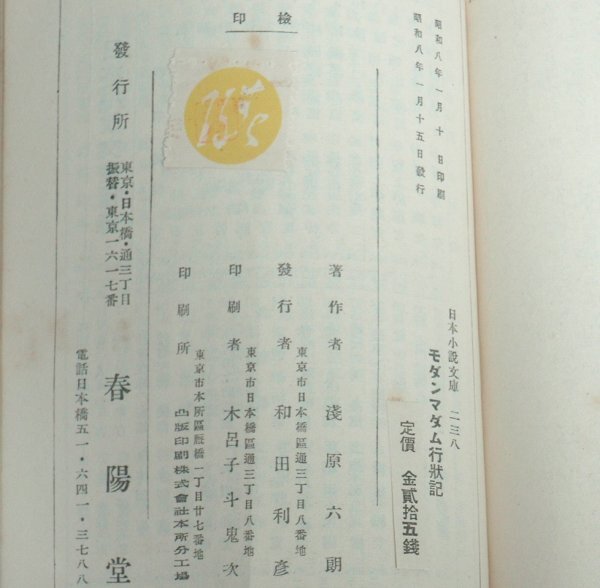 昭和八年一月十日印刷
昭和八年一月十五日發行
日本小說文庫 二三八
モダンマダム行狀記
定價 金貳拾五錢
檢印
著作者 淺原六朗
東京市日本橋區通三丁目八番地
發行者 和田利彦
東京市日本橋區通三丁目八番地
印刷者 木呂子斗鬼次
東京市本所區厩橋一丁目廿七番地
印刷所 凸版印刷株式會社本所分工場
發行所 東京・日本橋・通三丁目
振替・東京一六一七番
春陽堂
電話日本橋五一・六四一・三七八八